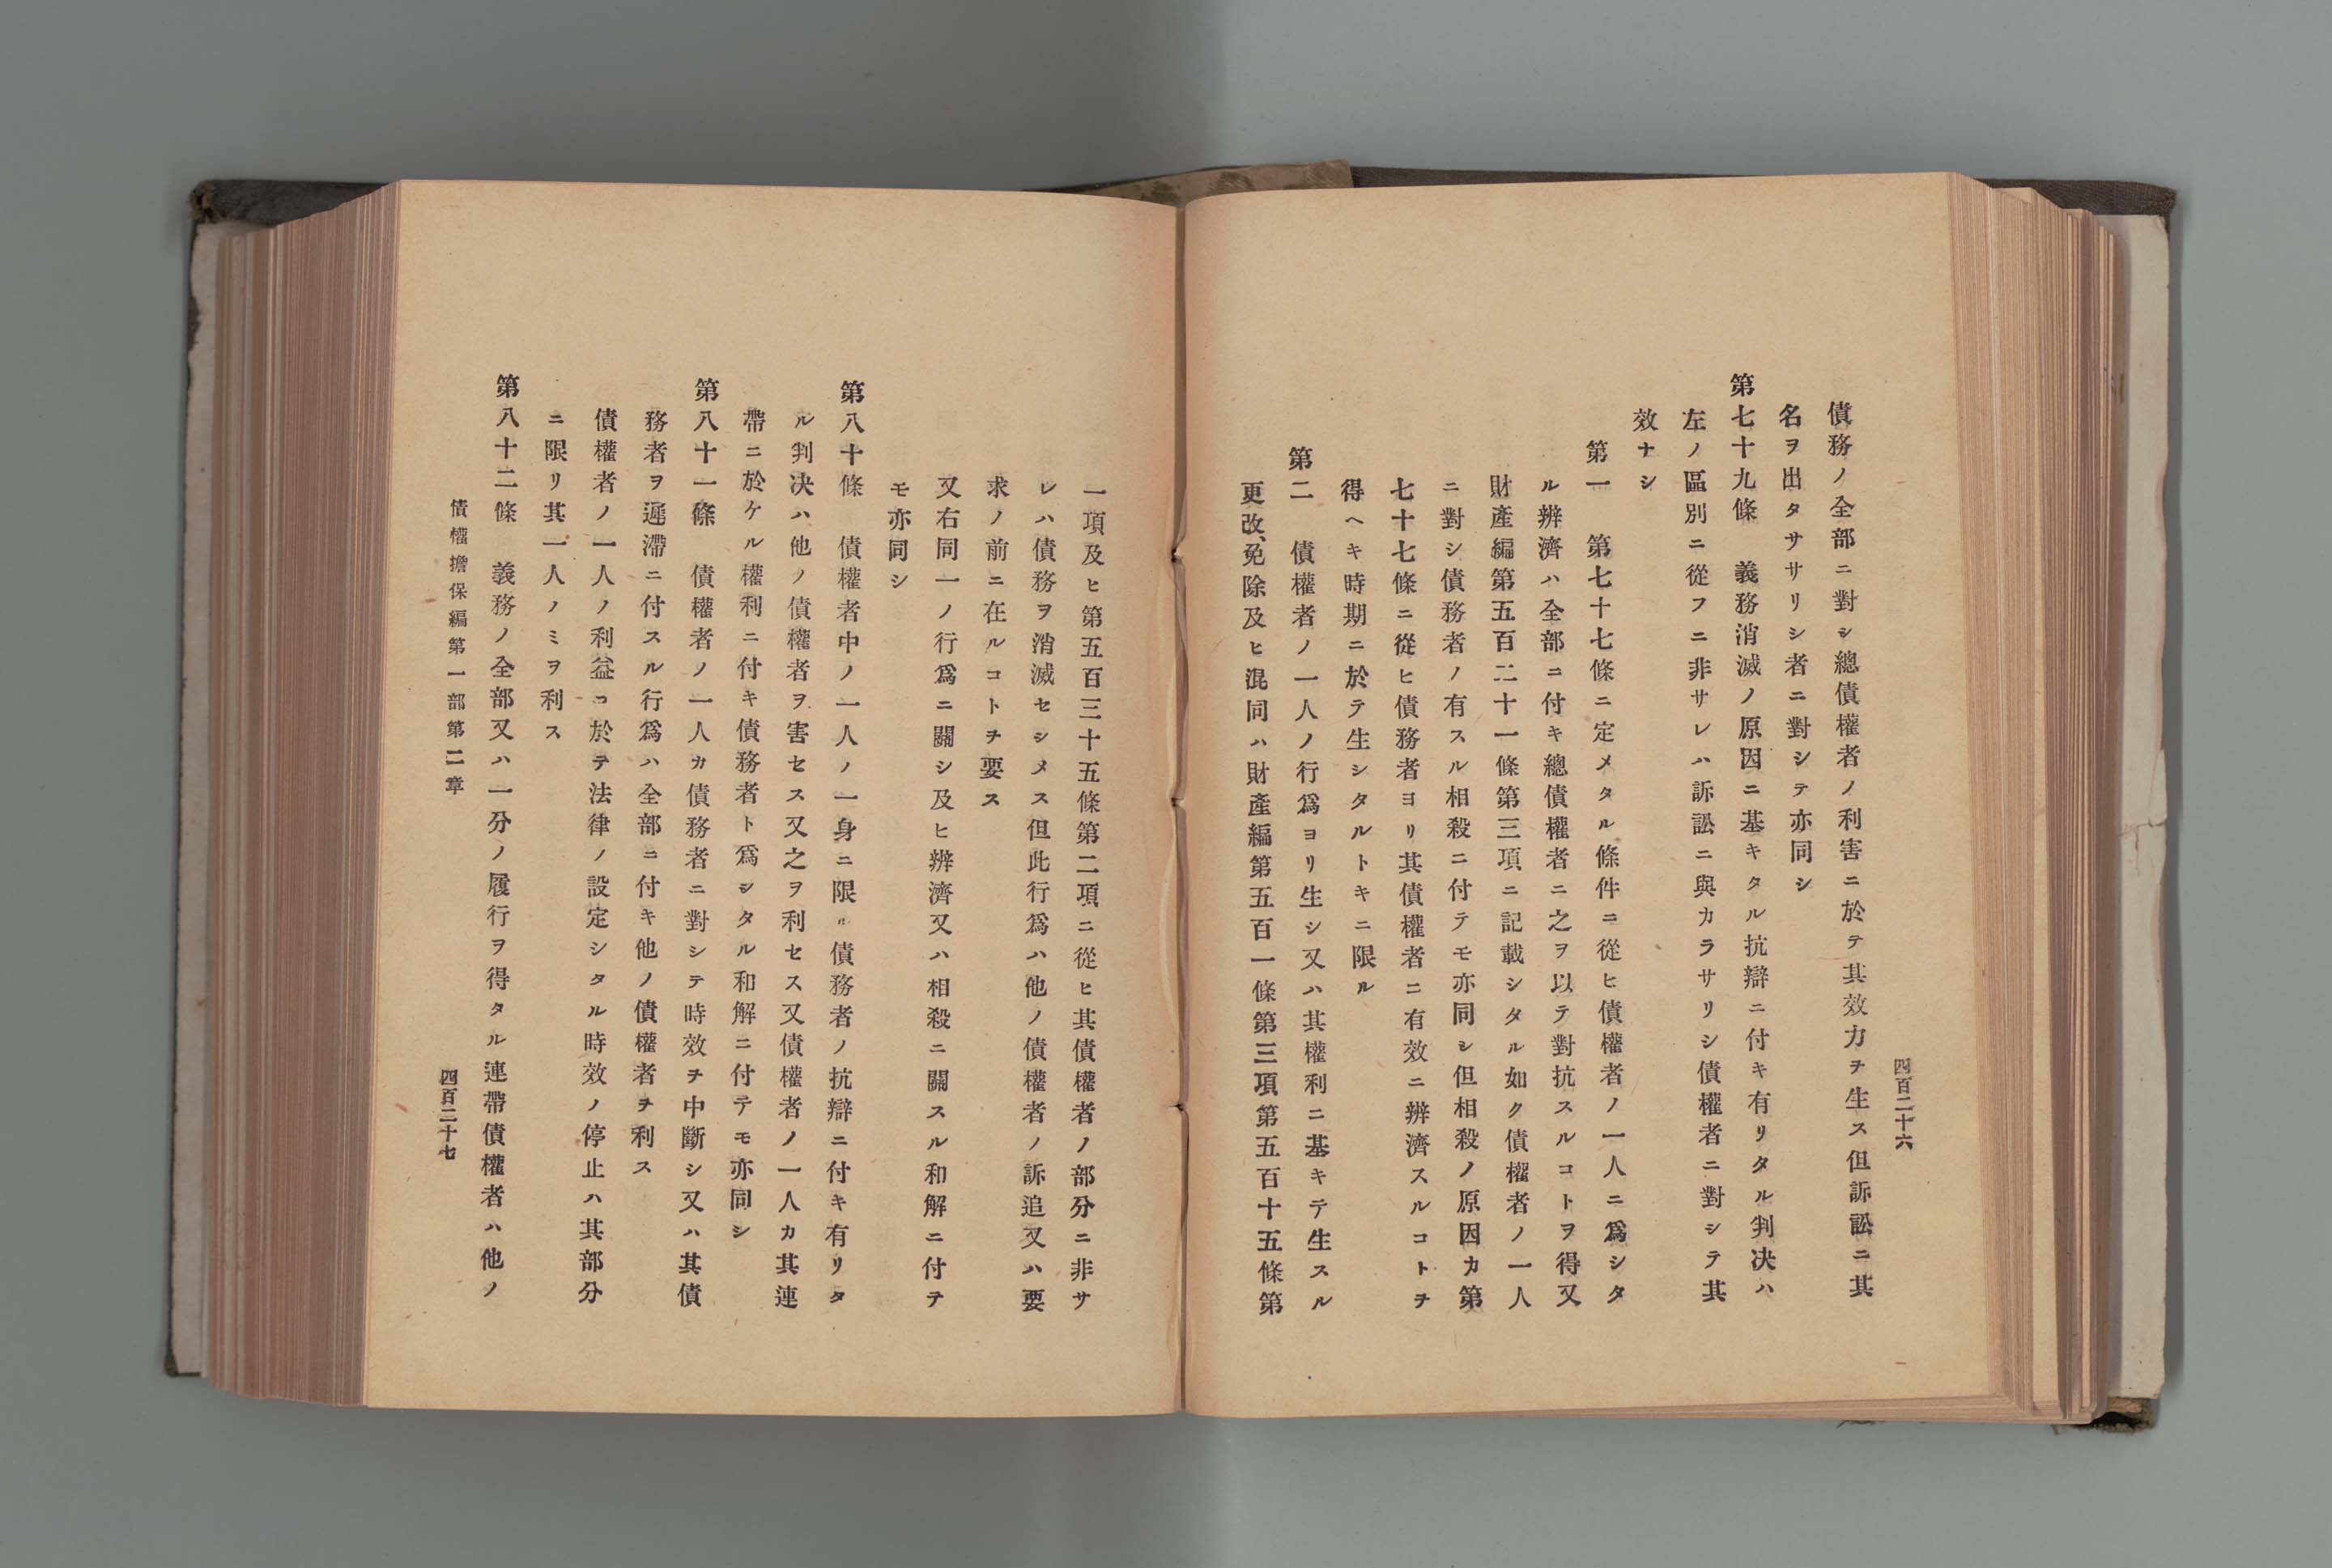 四百二十六
債務ノ全部ニ對シ總債權者ノ利害ニ於テ其效力ヲ生ス但訴訟ニ其
名ヲ出タササリシ者ニ對シテ亦同シ
第七十九條　義務消滅ノ原因ニ基キタル抗辯ニ付キ有リタル判决ハ
左ノ區別ニ從フニ非サレハ訴訟ニ與カラサリシ債權者ニ對シテ其
效ナシ
第一　第七十七條ニ定メタル條件ニ從ヒ債權者ノ一人ニ爲シタ
ル辨濟ハ全部ニ付キ總債權者ニ之ヲ以テ對抗スルコトヲ得又
財產編第五百二十一條第三項ニ記載シタル如ク債權者ノ一人
ニ對シ債務者ノ有スル相殺ニ付テモ亦同シ但相殺ノ原因カ第
七十七條ニ從ヒ債務者ヨリ其債權者ニ有效ニ辨濟スルコトヲ
得ヘキ時期ニ於テ生シタルトキニ限ル
第二　債權者ノ一人ノ行爲ヨリ生シ又ハ其權利ニ基キテ生スル
更改、免除及ヒ混同ハ財產編第五百一條第三項第五百十五條第
一項及ヒ第五百三十五條第二項ニ從ヒ其債權者ノ部分ニ非サ
レハ債務ヲ消滅セシメス但此行爲ハ他ノ債權者ノ訴追又ハ要
求ノ前ニ在ルコトヲ要ス
又右同一ノ行爲ニ關シ及ヒ辨濟又ハ相殺ニ關スル和解ニ付テ
モ亦同シ
第八十條　債權者中ノ一人ノ一身ニ限ル債務者ノ抗辯ニ付キ有リタ
ル判决ハ他ノ債權者ヲ害セス又之ヲ利セス又債權者ノ一人カ其連
帶ニ於ケル權利ニ付キ債務者ト爲シタル和解ニ付テモ亦同シ
第八十一條　債權者ノ一人カ債務者ニ對シテ時效ヲ中斷シ又ハ其債
務者ヲ遲滯ニ付スル行爲ハ全部ニ付キ他ノ債權者ヲ利ス
債權者ノ一人ノ利益ニ於テ法律ノ設定シタル時效ノ停止ハ其部分
ニ限リ其一人ノミヲ利ス
第八十二條　義務ノ全部又ハ一分ノ履行ヲ得タル連帶債權者ハ他ノ
債權擔保編第一部第二章
四百二十七